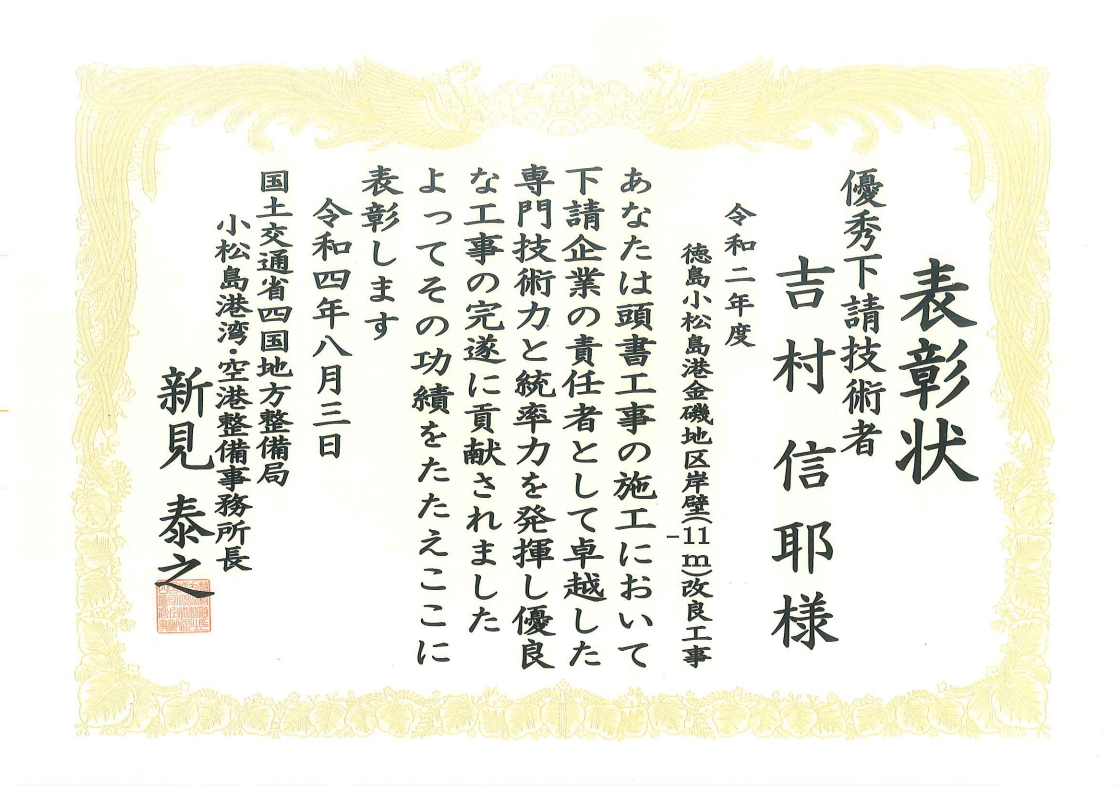 表彰状
優秀下請技術者
吉村信耶様
令和二年度
徳島小松島港金磯地区岸壁(-11m)改良工事
あなたは頭書工事の施工において
下請企業の責任者として卓越した
専門技術力と統率力を発揮し優良
な工事の完遂に貢献されました
よってその功績をたたえここに
表彰します
令和四年八月三日
国土交通省四国地方整備局
小松島港湾・空港整備事務所長
新見泰之